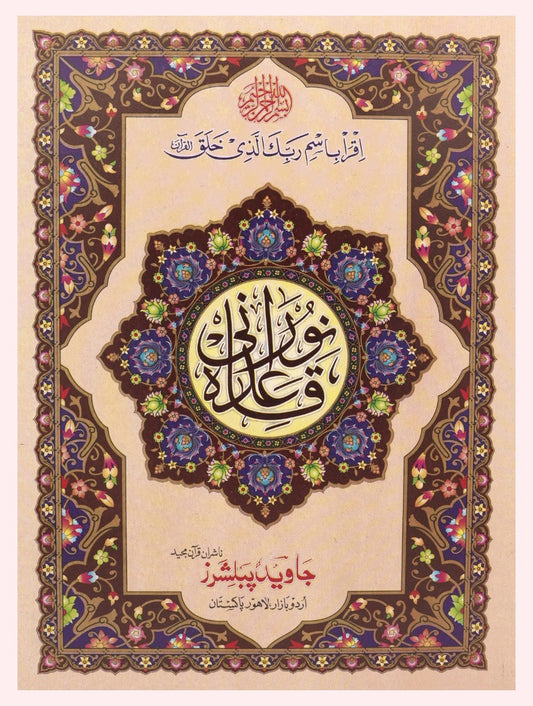 بسم الله الرحمن الرحيم
اِقْرَاْ بِاسْمِ رَبِّكَ الَّذِىْ خَلَقَ القرآن
نُورانی قاعدہ
ناشران قرآن مجید
جاوید پبلشرز
اُردو بازار، لاھور پاکستان